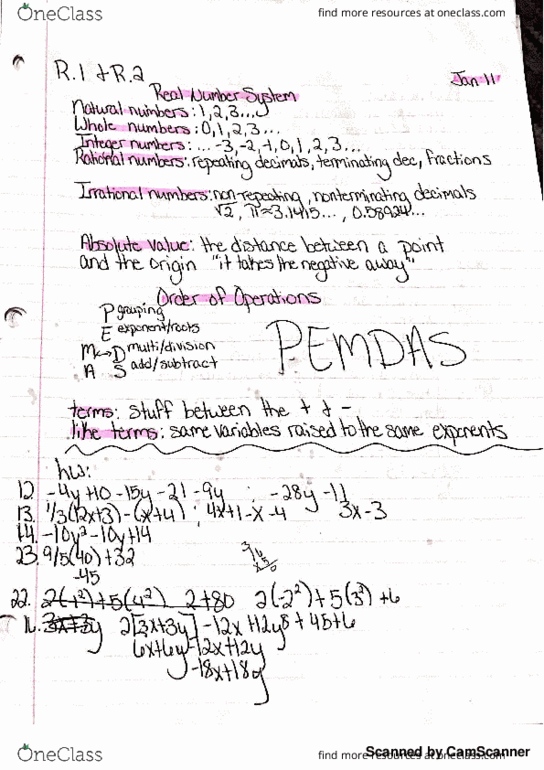 OneClass
find more resources at oneclass.com
R.1 & R.2
Jan 11
Real Number System
Natural numbers: 1,2,3...
Whole numbers: 0,1,2,3...
Integer numbers: ... -3,-2,-1,0,1,2,3...
Rational numbers: repeating decimals, terminating dec, fractions
Irrational numbers: non-repeating, nonterminating decimals
√2, π≈3.1415..., 0.58924...
Absolute value: the distance between a point
and the origin "it takes the negative away"
Order of Operations
P grouping
E exponent/roots
M↔D multi/division
A S add/subtract
PEMDAS
terms: stuff between the + & -
like terms: same variables raised to the same exponents
hw:
12. -4y+10-15y-21-9y ; -28y-11
13. 1/3(12x+3)-(x+4) ; 4x+1-x-4 3x-3
14. -10y²-10y+14
23. 9/5(40)+32
-45
22. 2(-1²)+5(4²) 2+80 2(-2²)+5(3²)+6
16. 3x+3y 2[3x+3y]-12x+12y 8+45+6
6x+6y-12x+12y
-18x+18y
OneClass
find more resources at oneclass.com
Scanned by CamScanner